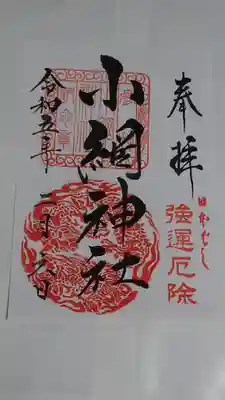 奉拝
日本ばし
強運厄除
小網神社
令和五年二月六日